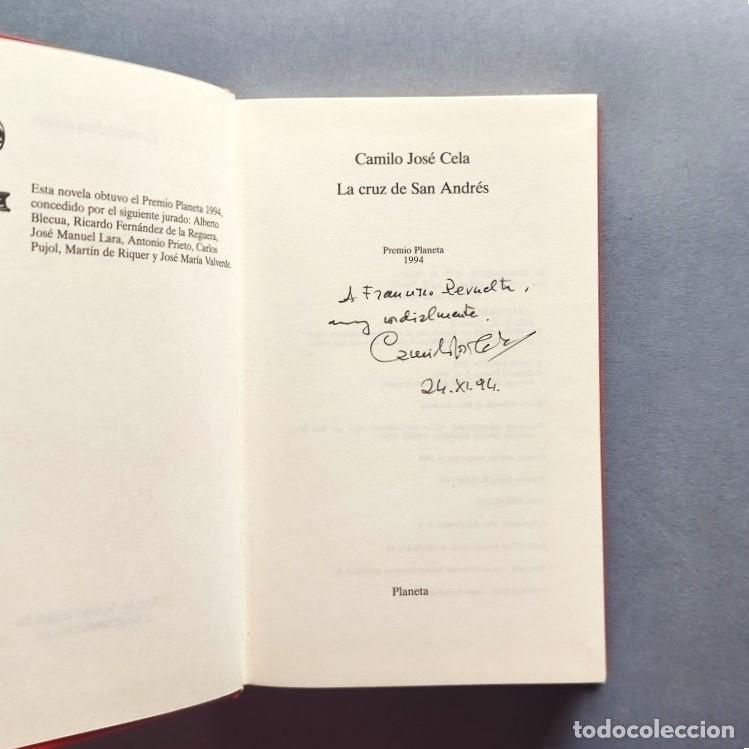 Esta novela obtuvo el Premio Planeta 1994,
concedido por el siguiente jurado: Alberto
Blecua, Ricardo Fernández de la Reguera,
José Manuel Lara, Antonio Prieto, Carlos
Pujol, Martín de Riquer y José María Valverde.
Camilo José Cela
La cruz de San Andrés
Premio Planeta
1994
A Francisco Revuelta,
muy cordialmente.
Camilo José Cela
24.XI.94.
Planeta
todocoleccion